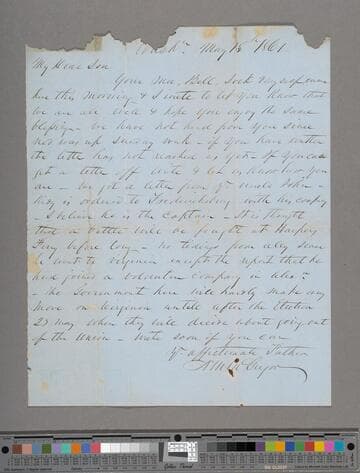 May 15th 1861
My Dear Son
Your Ma, Bell, Jack &
here this morning & I write to let you know that
we are all well & hope you enjoy the same
blessing - we have not heard from you since
was up Sunday week - if you have written
the letter has not reached us yet - if you can
get a letter off write & let us know how you
are - We got a letter from yr uncle John -
he is ordered to Fredericksburg with his company
- I believe he is the Captain - It is thought
that a battle will be fought at Harpers
Ferry before long - No tidings from since
he went to Virginia except the report that he
had joined a volunteer company in
The Government here will hardly make any
move on Virginia until after the Election
23 May when they will decide about going out
of the Union - Write soon if you can
Yr affectionate Father